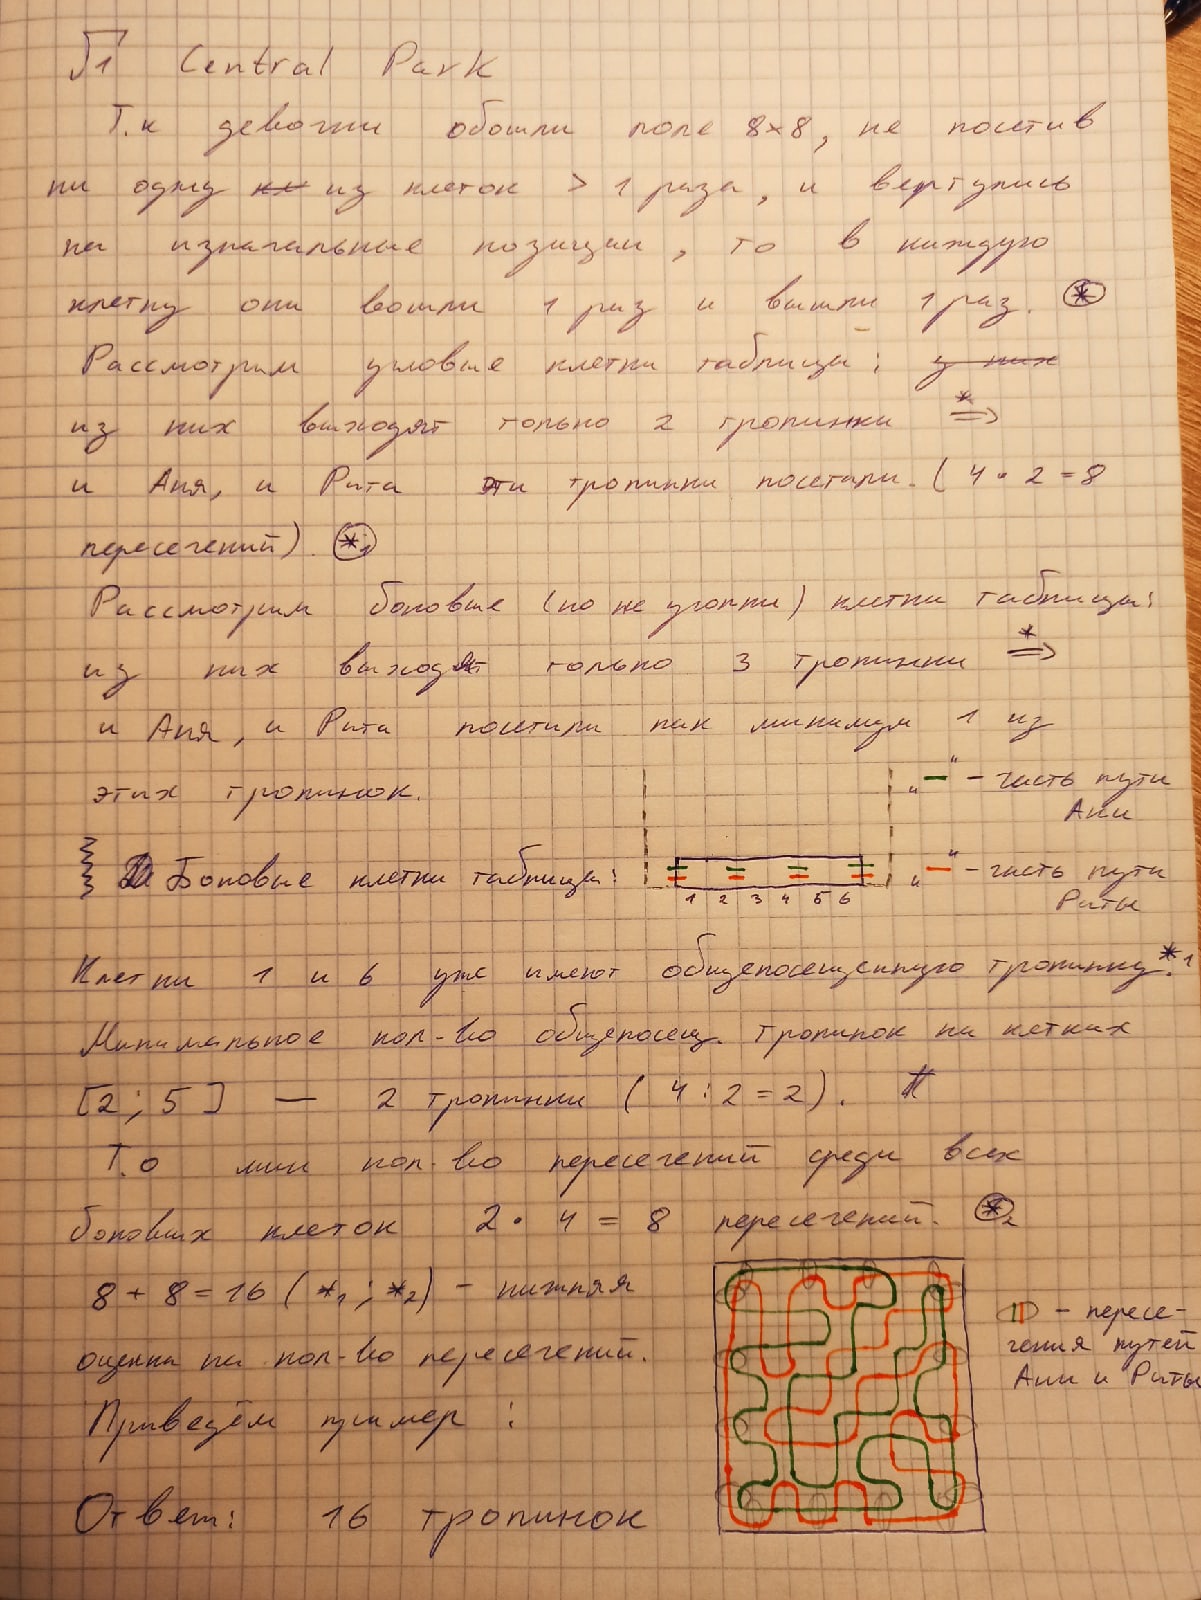 √1 Central Park
Т.к девочки обошли поле 8×8, не посетив
ни одну из клеток > 1 раза, и вернулись
на изначальные позиции, то в каждую
клетку они вошли 1 раз и вышли 1 раз. *
Рассмотрим угловые клетки таблицы: у них
из них выходят только 2 тропинки *⇒
и Аня, и Рита эти тропинки посетили. (4 · 2 = 8
пересечений). *1
Рассмотрим боковые (но не уголки) клетки таблицы:
из них выходят только 3 тропинки *⇒
и Аня, и Рита посетили как минимум 1 из
этих тропинок.
"–" – часть пути
Ани
Боковые клетки таблицы:
1 2 3 4 5 6
"–" – часть пути
Риты
Клетки 1 и 6 уже имеют общепосещенную тропинку.*1
Минимальное кол-во общепосещ. тропинок на кетках
[2; 5] — 2 тропинки (4 : 2 = 2).
Т.о мин кол-во пересечений среди всех
боковых клеток 2 · 4 = 8 пересечений. *2
8 + 8 = 16 (*1 ; *2) – нижняя
оценка на кол-во пересечений.
Приведём пример :
– пересе-
чения путей
Ани и Риты
Ответ: 16 тропинок